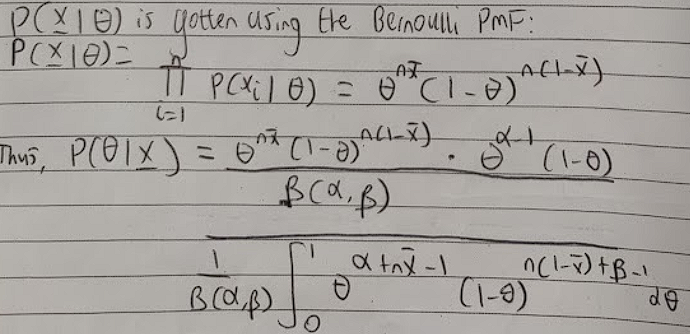 P(x|θ) is gotten using the Bernoulli PMF:
P(x|θ) = ∏_{i=1}^{n} P(x_i|θ) = θ^{nx̄} (1-θ)^{n(1-x̄)}
Thus, P(θ|x) = θ^{nx̄} (1-θ)^{n(1-x̄)} · θ^{α-1} (1-θ)
B(α,β)
1/B(α,β) ∫_0^1 θ^{α+nx̄-1} (1-θ)^{n(1-x̄)+β-1} dθ